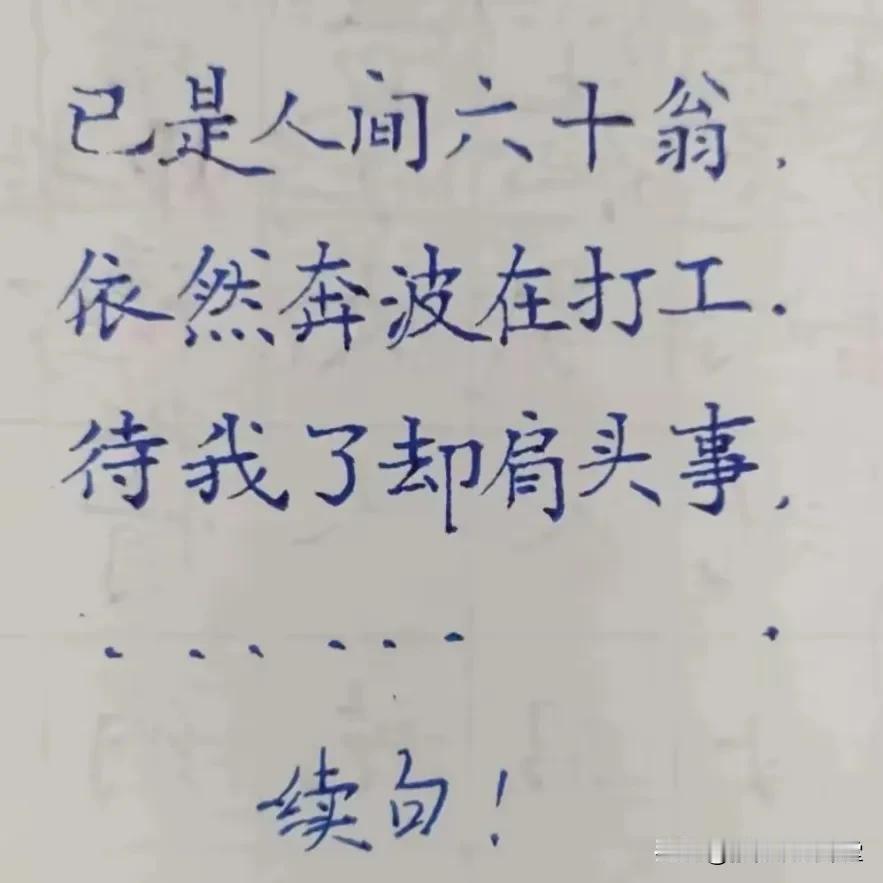 已是人间六十翁，
依然奔波在打工.
待我了却肩头事，
......   .
续句！